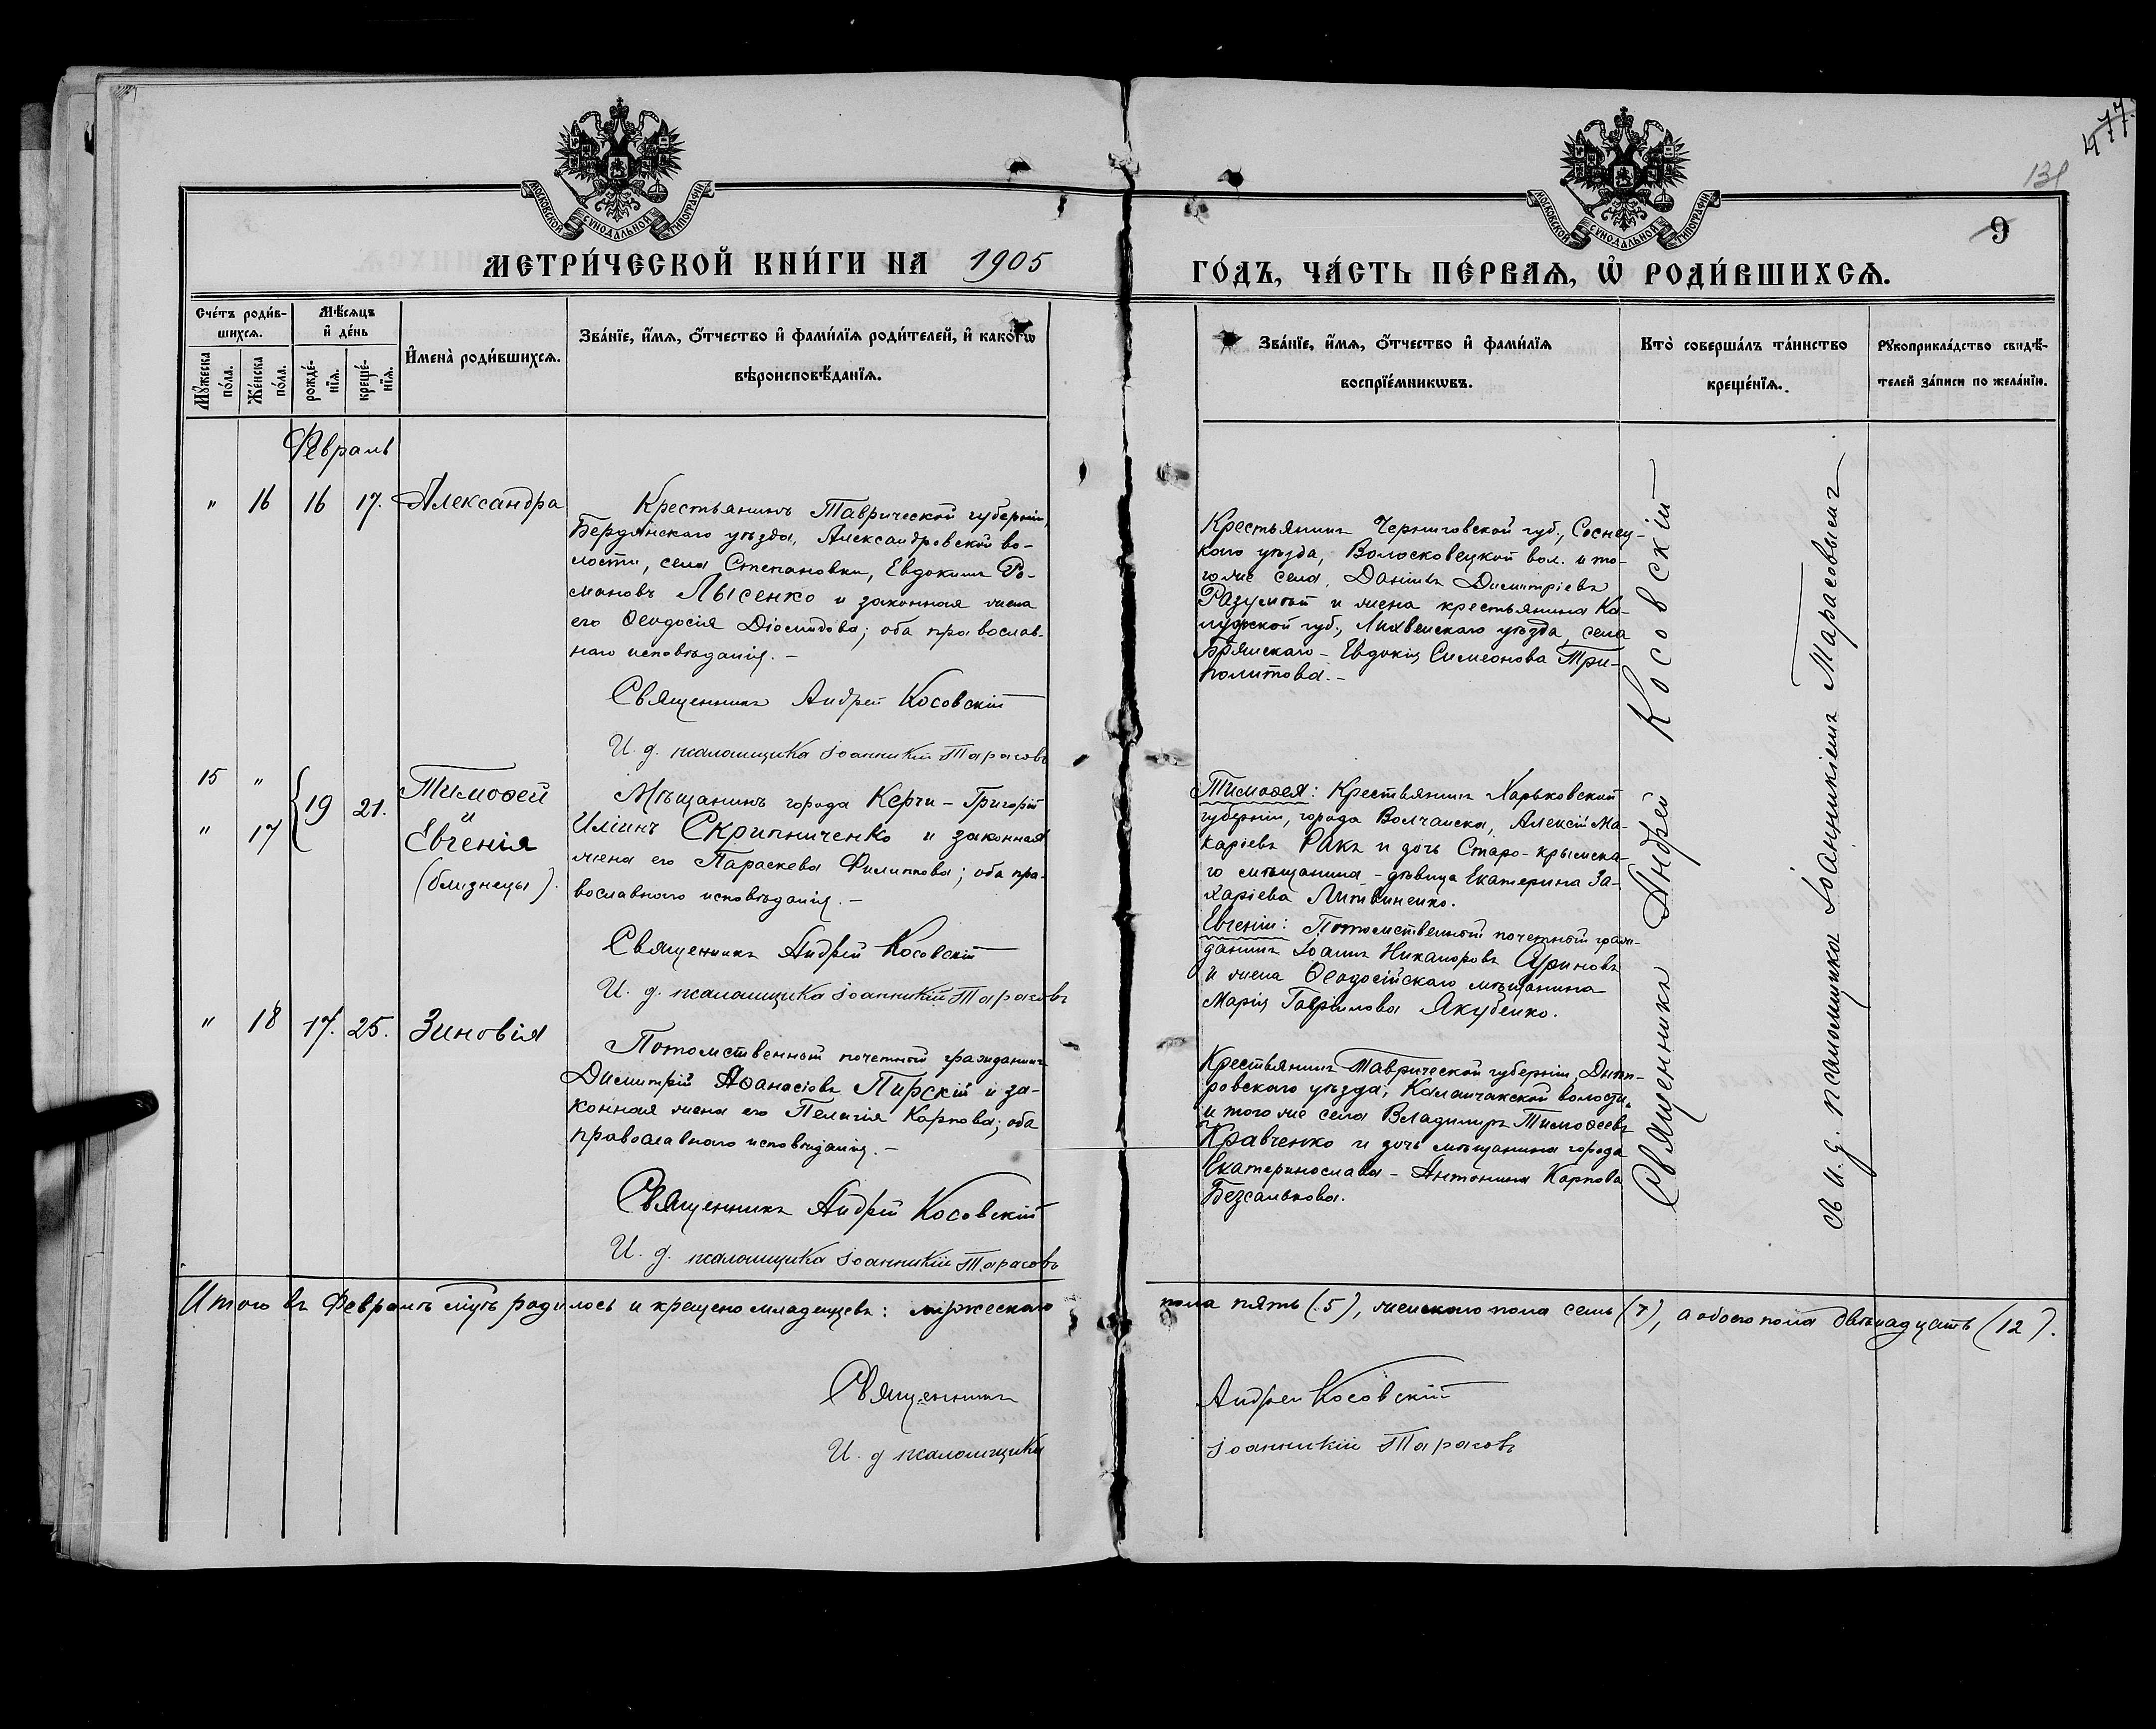 477.
131
МОСКОВСКОЙ СУНОДАЛЬНОЙ ТИПОГРАФІИ
МОСКОВСКОЙ СУНОДАЛЬНОЙ ТИПОГРАФІИ
9
МЕТРИ́ЧЕСКОЙ КНИ́ГИ НА 1905
ГО́ДЪ, ЧА́СТЬ ПЕ́РВАѦ, Ѡ҆ РОДИ́ВШИХСѦ.
Сче́тъ роди́в-
шихсѧ.
Мѣ́сѧцъ
и҆ де́нь
Мꙋ́жеска
по́ла.
Же́нска
по́ла.
рожде́-
нїѧ.
креще́-
нїѧ.
И҆мена̀ роди́вшихсѧ.
Зва́нїе, и҆́мѧ, ѻ҆́тчество и҆ фами́лїѧ роди́телей, и҆ како́гѡ
вѣроисповѣ́данїѧ.
Зва́нїе, и҆́мѧ, ѻ҆́тчество и҆ фами́лїѧ
воспрїе́мникѡвъ.
Кто̀ соверша́лъ та́инство
креще́нїѧ.
Рꙋкоприкла́дство свидѣ́-
телей за́писи по жела́нїю.
Февраль
" 16 16 17. Александра
Крестьянинъ Таврической губерніи,
Бердянскаго уѣзда, Александровской во-
лости, села Степановки, Евдокимъ Ро-
мановъ Лысенко и законная жена
его Ѳеодосія Діомидова; оба православ-
наго исповѣданія. –
Священникъ Андрей Косовскій
И. д. псаломщика Іоанникій Тарасовъ
Крестьянинъ Черниговской губ., Сосниц-
каго уѣзда, Волосковецкой вол. и то-
гоже села, Даніилъ Димитріевъ
Разумный и жена крестьянина Ка-
лужской губ., Лихвенскаго уѣзда, села
Брянскаго – Евдокія Симеонова Три-
политова. –
15 "
" 17
19 21.
Тимоѳей
и
Евгенія
(близнецы).
Мѣщанинъ города Керчи – Григорій
Иліинъ Скрипниченко и законная
жена его Параскева Филиппова; оба пра-
вославнаго исповѣданія. –
Священникъ Андрей Косовскій
И. д. псаломщика Іоанникій Тарасовъ
Тимоѳея: Крестьянинъ Харьковской
губерніи, города Волчанска, Алексій Ма-
каріевъ Ракъ и дочь Старо-крымска-
го мѣщанина – дѣвица Екатерина За-
харіева Литвиненко.
Евгеніи: Потомственный почетный граж-
данинъ Іоаннъ Никаноровъ
и жена Ѳеодосійскаго мѣщанина
Марія Гавріилова Якубенко.
" 18 17. 25. Зиновія
Потомственный почетный гражданинъ
Димитрій Аѳанасіевъ Пирскій и за-
конная жена его Пелагія Карпова; оба
православнаго исповѣданія. –
Священникъ Андрей Косовскій
И. д. псаломщика Іоанникій Тарасовъ
Крестьянинъ Таврической губерніи, Днѣп-
ровскаго уѣзда, Каланчакской волости
и того же села Владимиръ Тимоѳеевъ
Кравченко и дочь мѣщанина города
Екатеринослава – Антонина Карпова
Безсалькова.
Священникъ Андрей Косовскій
съ и. д. псаломщика Іоанникіемъ Тарасовымъ
Итого въ Февралѣ м̃цѣ родилось и крещено младенцевъ: мужескаго пола пять (5), женскаго пола семь (7), а обоего пола двѣнадцать (12).
Священникъ Андрей Косовскій
И. д псаломщика Іоанникій Тарасовъ